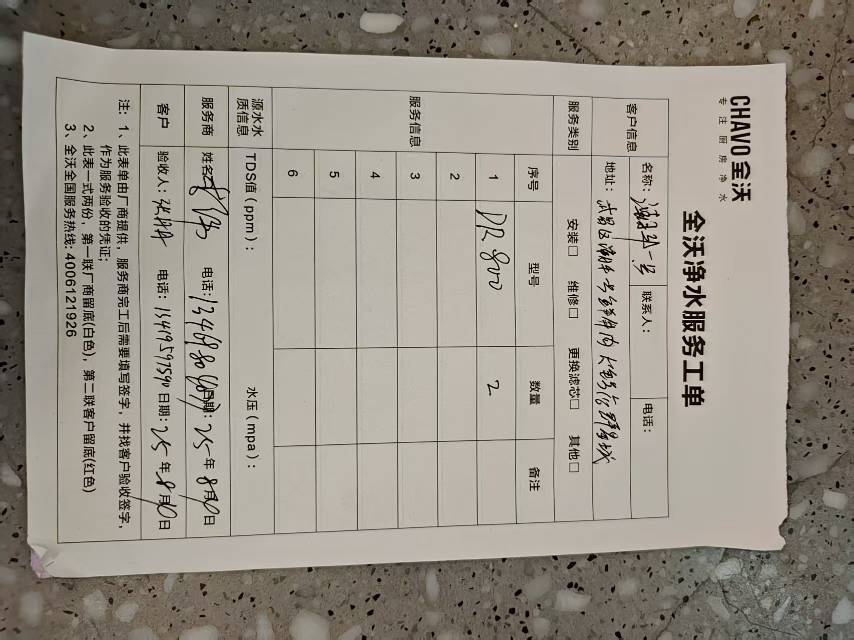 CHAVO 全沃
专注厨房净水
全沃净水服务工单
客户信息 名称： 联系人： 电话：
地址：
服务类别 安装□ 维修□ 更换滤芯□ 其他□
服务信息 序号 型号 数量 备注
1 DR800 2
2
3
4
5
6
源水水质信息 TDS值（ppm）： 水压（mpa）：
服务商 姓名： 电话： 日期：25年8月10日
客户 验收人： 电话：13419597590 日期：25年8月10日
注：1、此表单由厂商提供，服务商完工后需要填写签字，并找客户验收签字，
作为服务验收的凭证；
2、此表一式两份，第一联厂商留底(白色)，第二联客户留底(红色)
3、全沃全国服务热线：4006121926